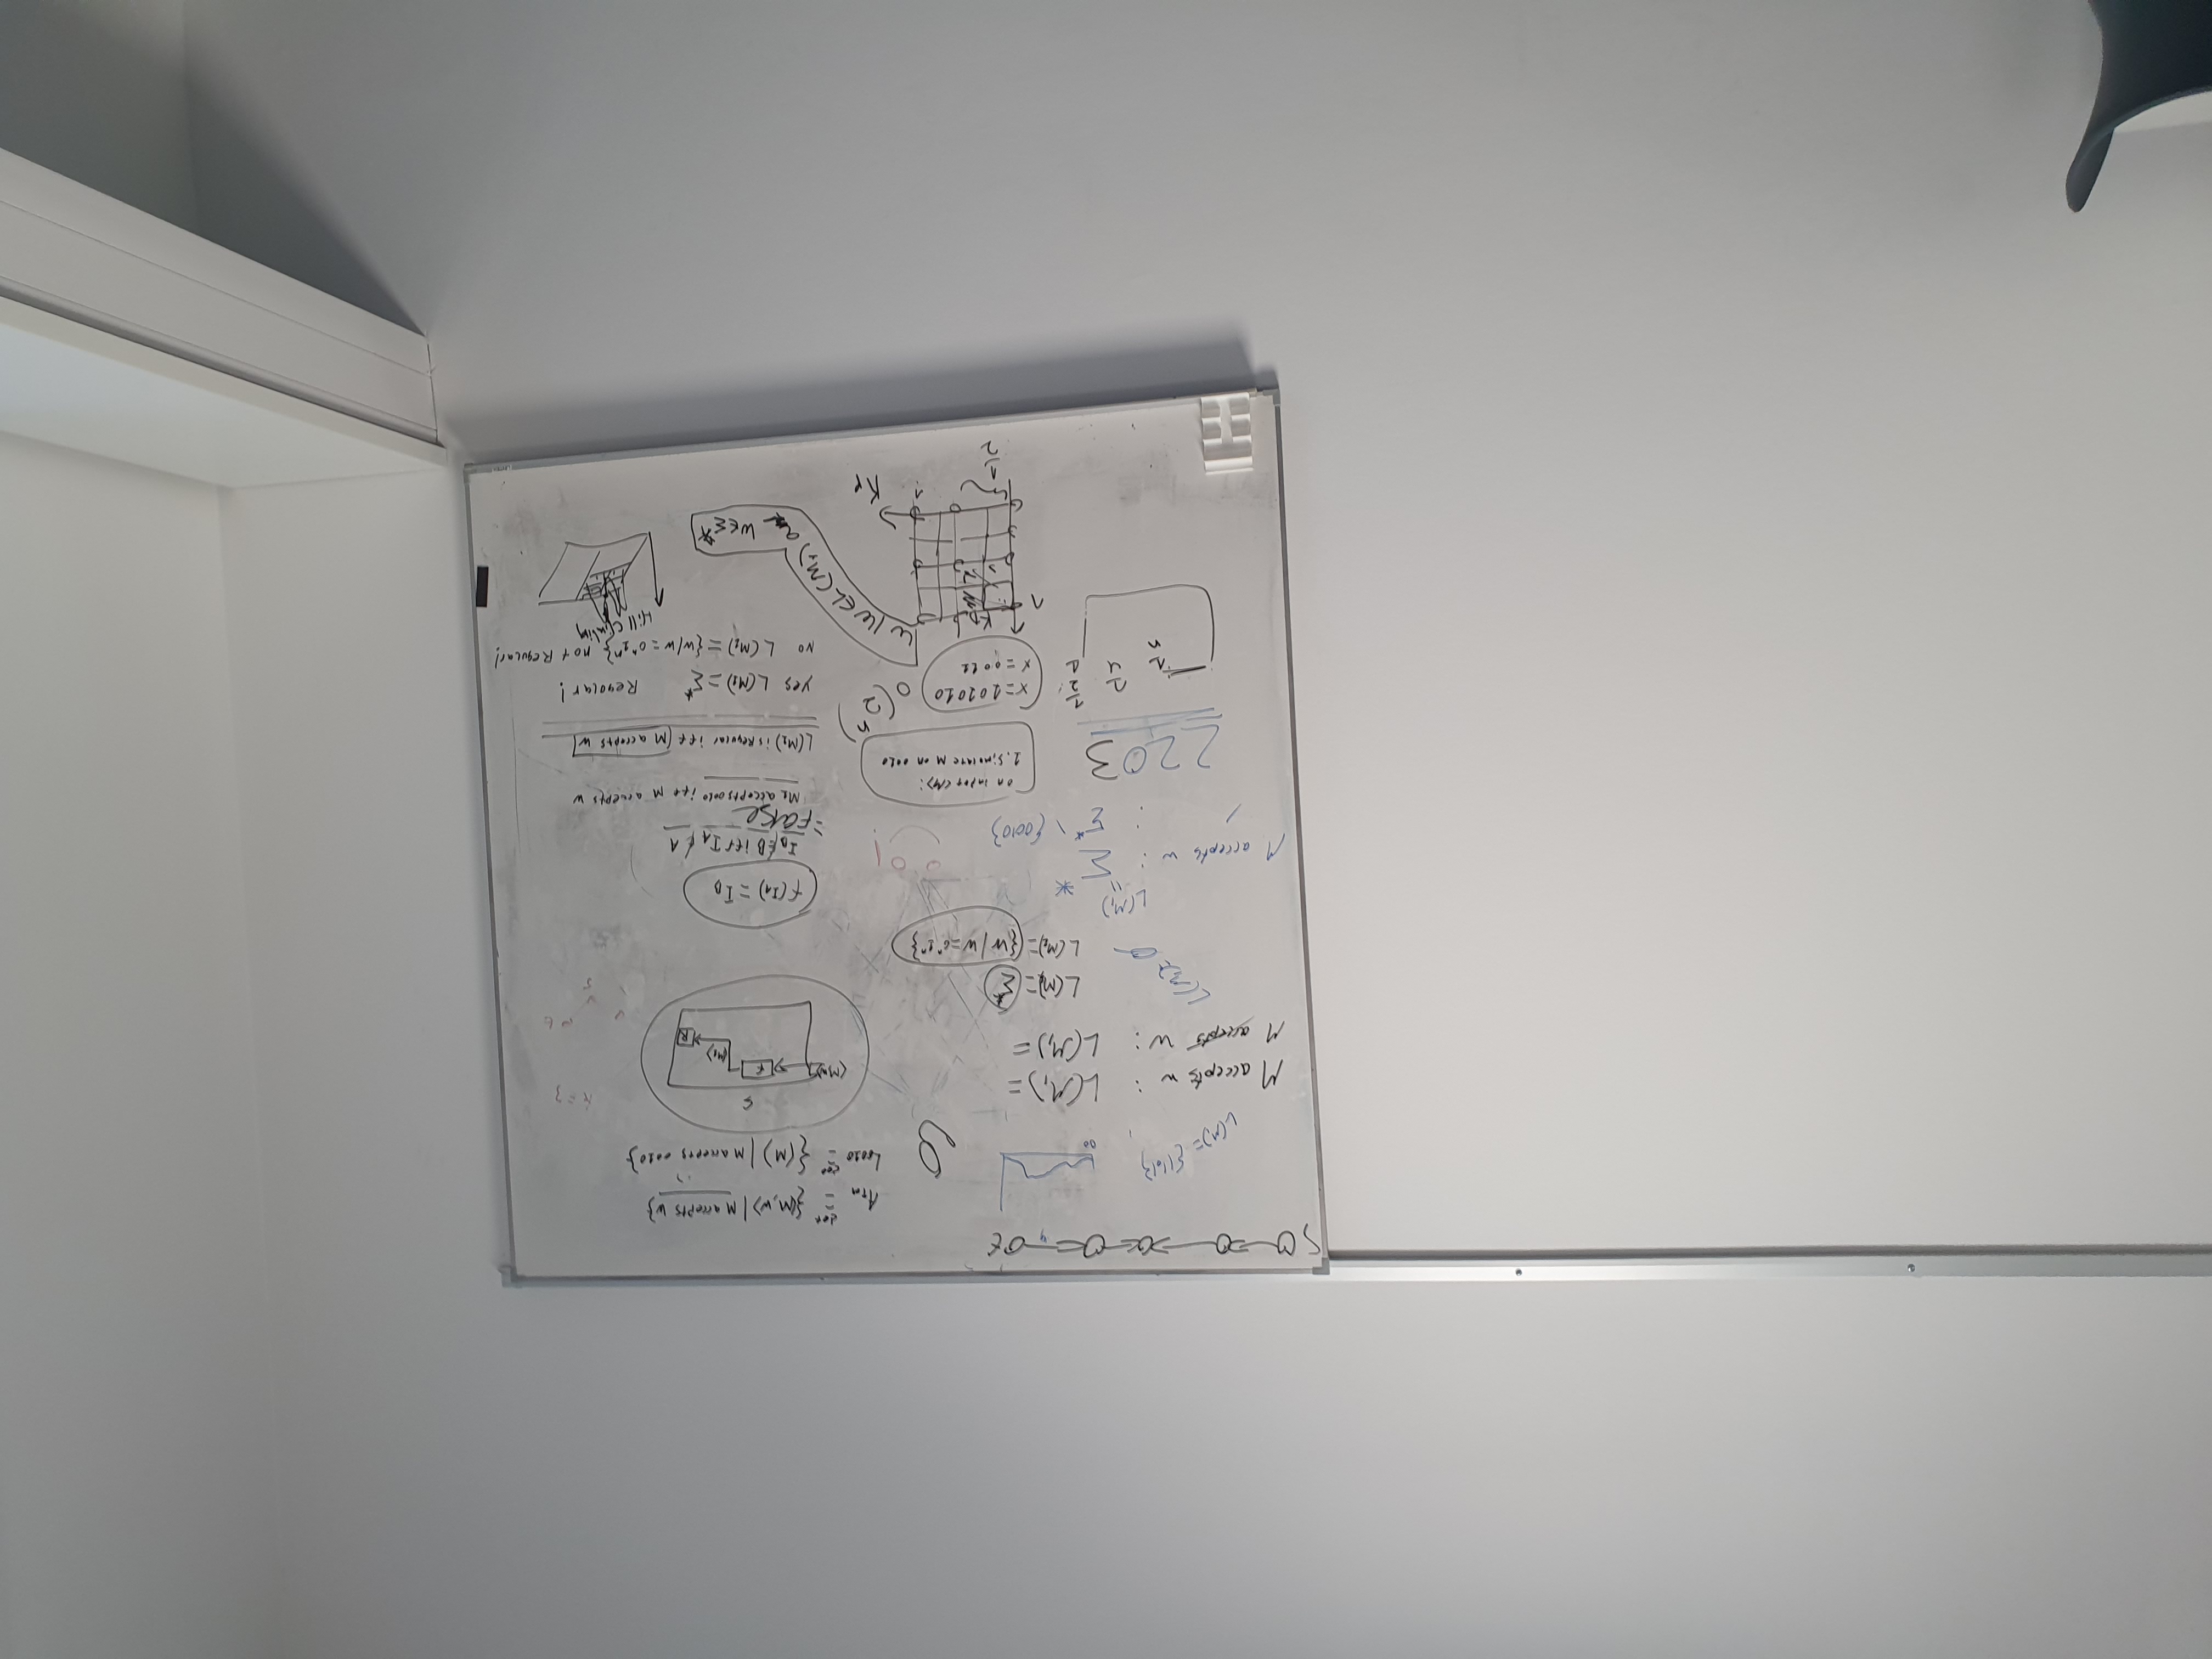 S t
L(M₁) = {1101}
00
M accepts w : L(M₁) =
M accepts w : L(M₁) =
L(M₁) = Ø
L(M₁) = Σ*
L(M₂) = {w/w=0ⁿ1ⁿ}
L(M₁)
"
M accepts w : Σ*
/ : Σ* \ {0010}
2203
on input <M>:
1. Simulate M on 0010
x=101010
x=0011
O(2ⁿ)
1/n 1/4 1/2 1
A_TM def= {<M,w> | M accepts w}
L0010 def= {<M> | M accepts 0010}
S
<M,w> F <M₁> R
k=3
f(I_A) = I_B
I_B ∉ B iff I_A ∉ A
= False
M₁ accepts 0010 iff M accepts w
L(M₁) is Regular iff M accepts w
yes L(M₁) = Σ* Regular!
no L(M₁) = {w/w = 0ⁿ1ⁿ} not Regular!
Hill Climbing
K_D
1
1
1/2
K_P
w/w∈L(M₁)
w∈Σ*